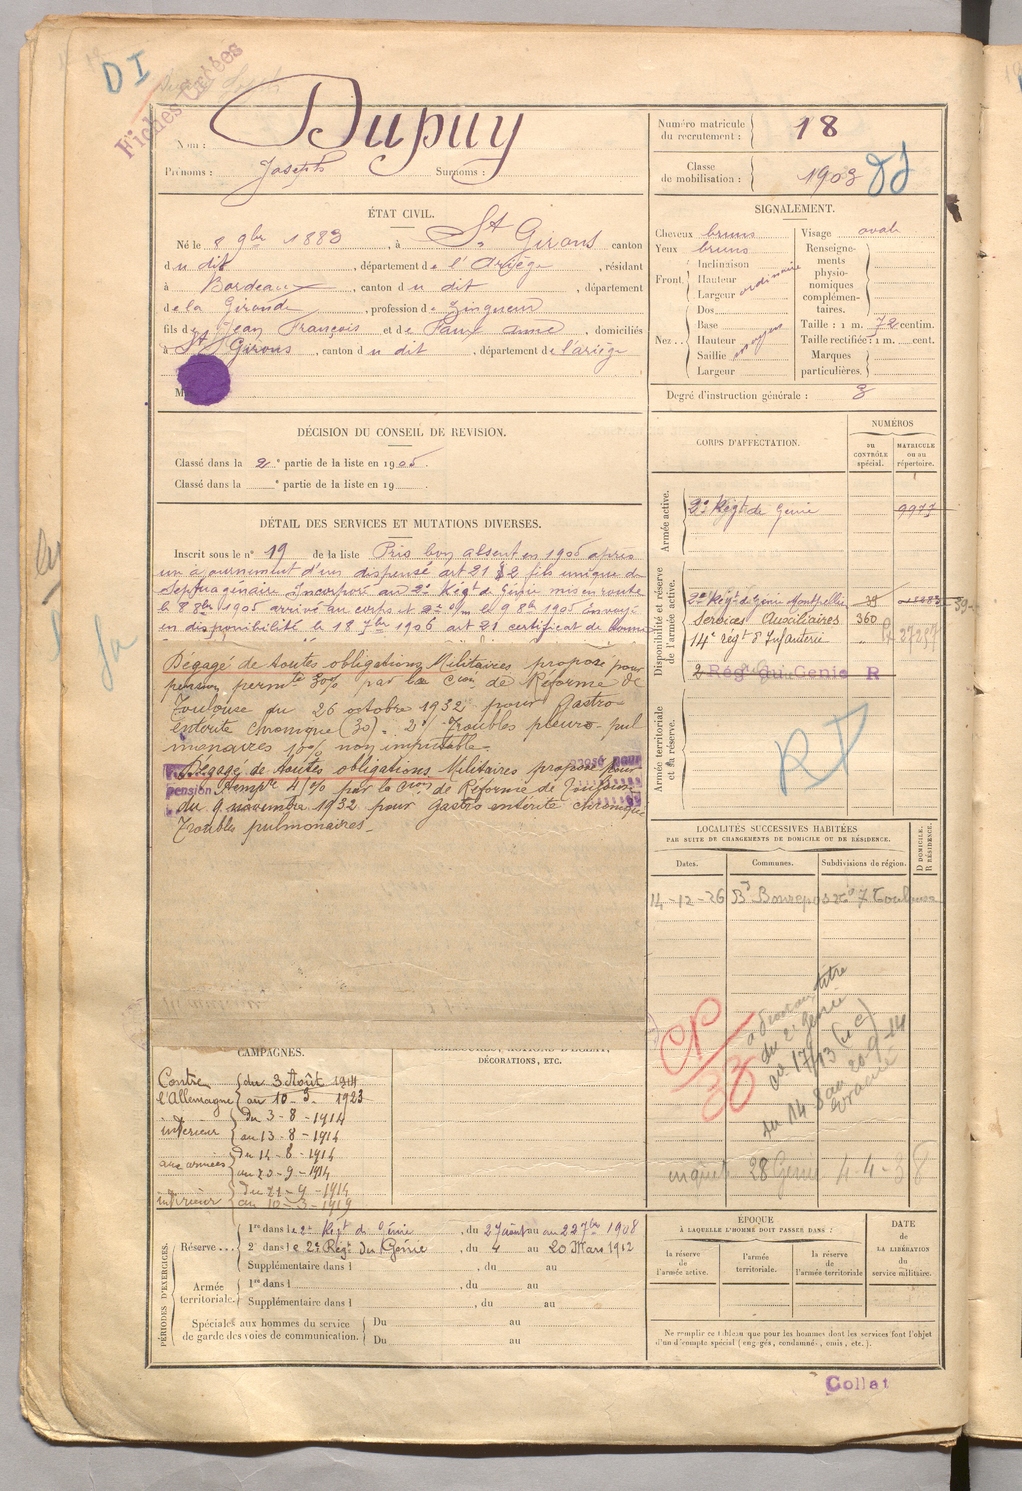 DI
Fiches Créées
Nom : Dupuy
Prénoms : Joseph Surnoms :
Numéro matricule du recrutement : 18
Classe de mobilisation : 1903
ÉTAT CIVIL.
Né le 8 9bre 1883, à St Girons canton
du dit, département de l'Ariège, résidant
à Bordeaux, canton du dit, département
de la Gironde, profession de Zingueur
fils de Jean François et de Faur anne, domiciliés
à St Girons, canton du dit, département de l'ariège
SIGNALEMENT.
Cheveux bruns
Yeux bruns
Front. Inclinaison
Hauteur
Largeur ordinaire
Nez.. Dos
Base
Hauteur
Saillie moyen
Largeur
Visage ovale
Renseignements physionomiques complémentaires.
Taille : 1 m. 72 centim.
Taille rectifiée : 1 m. cent.
Marques particulières.
Degré d'instruction générale : 3
DÉCISION DU CONSEIL DE REVISION.
Classé dans la 2e partie de la liste en 1905.
Classé dans la e partie de la liste en 19
DÉTAIL DES SERVICES ET MUTATIONS DIVERSES.
Inscrit sous le n° 19 de la liste Pris bon absent en 1905 après
un ajournement d'un dispensé art 21 §2 fils unique de
septuagénaire Incorporé au 2e Régt de Génie mis en route
le 8 8bre 1905 arrivé au corps et 2e s/m le 9 8bre 1905 Envoyé
en disponibilité le 18 7bre 1906 art 21 certificat de bonne
Dégagé de toutes obligations Militaires proposé pour
pension permte 30% par la Cion de Réforme de
Toulouse du 26 octobre 1932 pour Gastro
entérite chronique (30). 2° Troubles pleuro-pul
monaires 10% non imputable.
Dégagé de toutes obligations Militaires proposé pour
pension tempre 4/% par la Cion de Réforme de Toulouse
du 9 novembre 1932 pour gastro entérite chronique
Troubles pulmonaires.
CORPS D'AFFECTATION.
NUMÉROS
au CONTRÔLE spécial.
MATRICULE ou au répertoire.
Armée active.
2e Régt de Génie 9977
Disponibilité et réserve de l'armée active.
2e Régt de Génie Montpellier 39
Services Auxiliaires 360
14e régt d'Infanterie
2 Rég du Génie R
Armée territoriale et sa réserve.
LOCALITÉS SUCCESSIVES HABITÉES
PAR SUITE DE CHANGEMENTS DE DOMICILE OU DE RÉSIDENCE.
Dates. Communes. Subdivisions de région.
D DOMICILE. R RÉSIDENCE.
14-12-26 Bd Bonrepos 7 Toulouse
a droit au titre
du 2e génie
Cie 17/13
du 14 8 au 20-9-14
evacué
28 Génie 4-4-38
CAMPAGNES.
Contre l'Allemagne du 3 Août 1914
au 10-3-1923
intérieur du 3-8-1914
au 13-8-1914
aux armées du 14-8-1914
au 23-9-1914
intérieur du 21-9-1914
au 10-3-1919
DÉCORATIONS, ETC.
PÉRIODES D'EXERCICES.
Réserve... 1re dans le 2e Régt de Génie, du 27 août au 22 7bre 1908
2e dans le 2e Régt Du Génie, du 4 au 20 Mars 1912
Supplémentaire dans l , du au
Armée territoriale. 1re dans l , du au
Supplémentaire dans l , du au
Spéciales aux hommes du service de garde des voies de communication.
Du au
Du au
ÉPOQUE
À LAQUELLE L'HOMME DOIT PASSER DANS :
la réserve de l'armée active.
l'armée territoriale.
la réserve de l'armée territoriale
DATE DE LA LIBÉRATION du service militaire.
Ne remplir ce tableau que pour les hommes dont les services font l'objet
d'un décompte spécial (engagés, condamnés, omis, etc.).
Collat